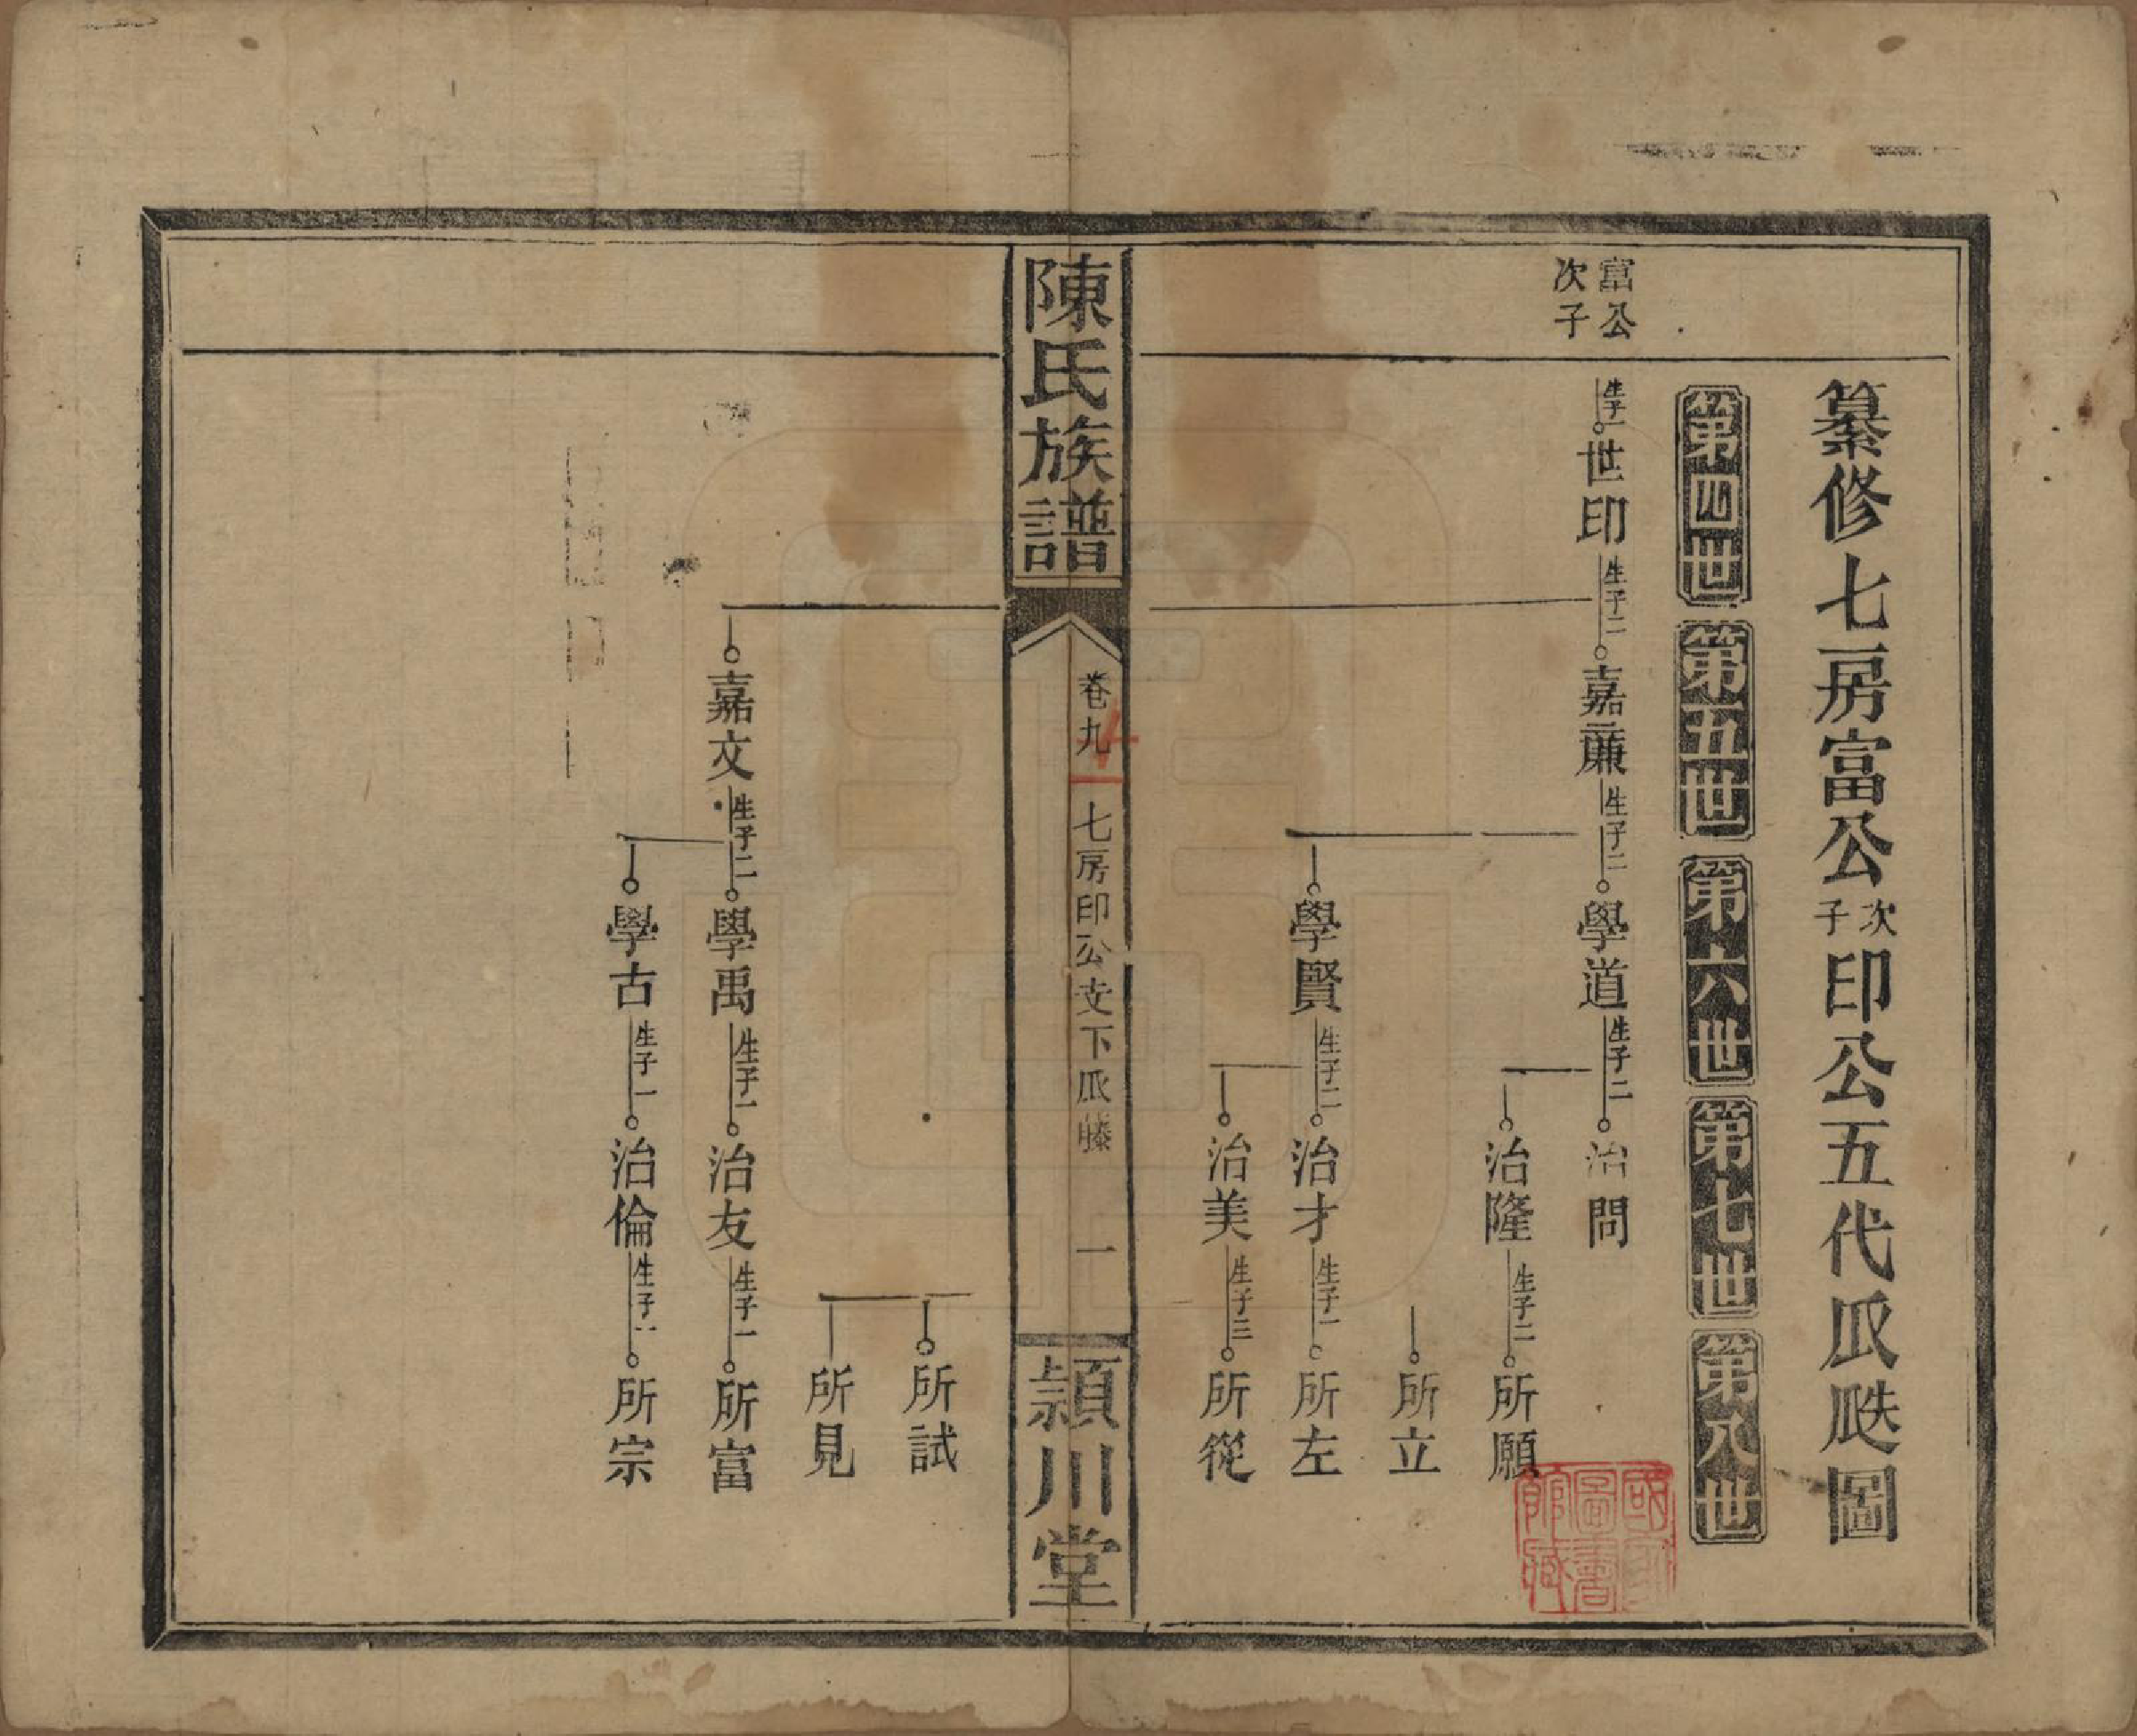 纂修七房富公次子印公五代瓜瓞圖
第四世 第五世 第六世 第七世 第八世
富公
次子
生子一 世印 生子二 嘉㢘 生子二 學道 生子二 治問
治隆 生子二 所願
所立
學賢 生子二 治才 生子一 所左
治美 生子三 所從
陳氏族譜 卷九 七房印公支下瓜籐 一 潁川堂
所試
所見
嘉文 生子二 學禹 生子一 治友 生子一 所富
學古 生子一 治倫 生子 所宗
國家圖書館藏